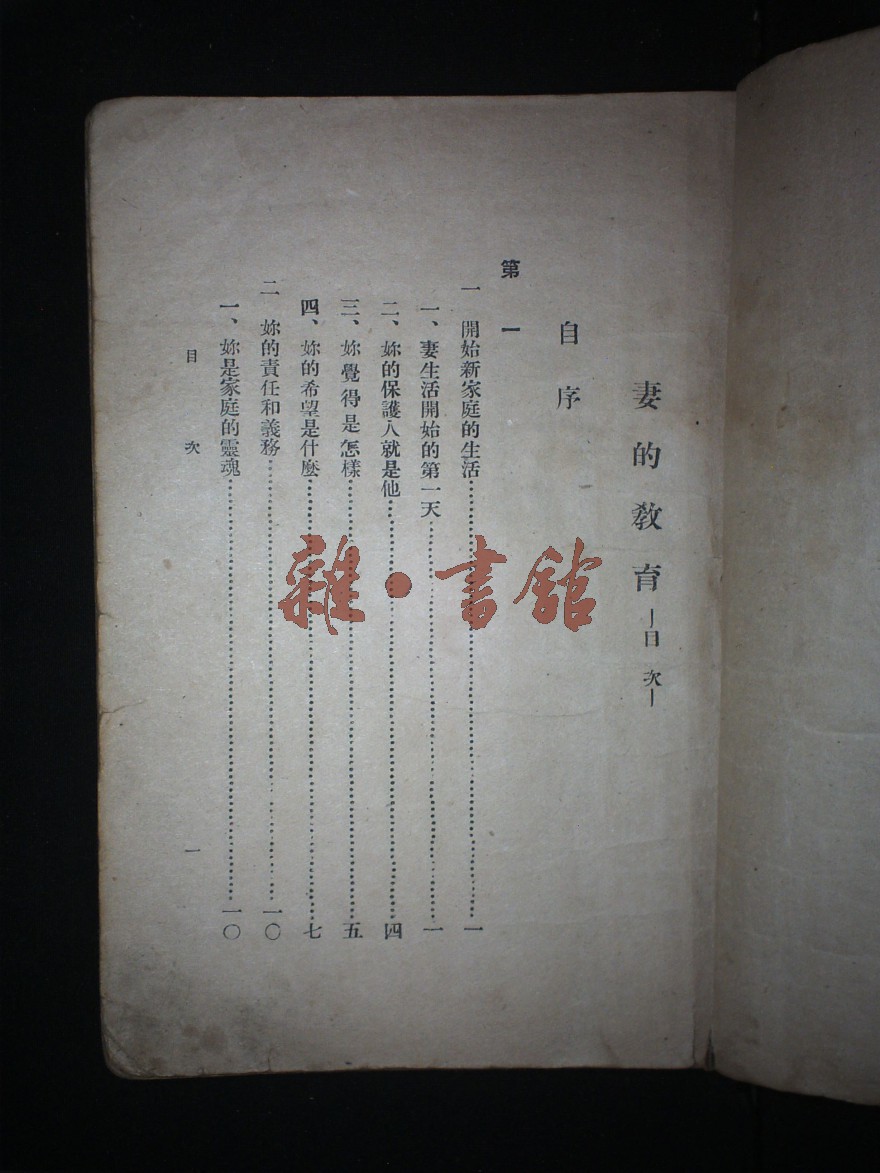 妻的敎育—目次—
自序
第一
一 開始新家庭的生活……一
一、妻生活開始的第一天……一
二、妳的保護人就是他……四
三、妳覺得是怎樣……五
四、妳的希望是什麼……七
二 妳的責任和義務……一〇
一、妳是家庭的靈魂……一〇
目次 一
雜·書館